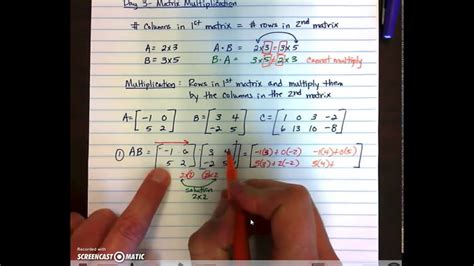 Day 3- Matrix Multiplication
# Columns in 1st matrix = # rows in 2nd matrix
A= 2x3 A·B = 2x3 = 3x5
B= 3x5 B·A = 3x5 ≠ 2x3 Cannot multiply
Multiplication: Rows in 1st matrix and multiply them
by the columns in the 2nd matrix
A= [-1 0] B= [3 4] C= [1 0 3 -2]
[5 2] [-2 5] [6 13 10 -8]
① AB = [-1 0] [3 4] = [-1(3)+0(-2) -1(4)+0(5)]
[5 2] [-2 5] [5(3)+2(-2) 5(4)+
2x2 2x2
solution
2x2
RECORDED WITH
SCREENCAST MATIC